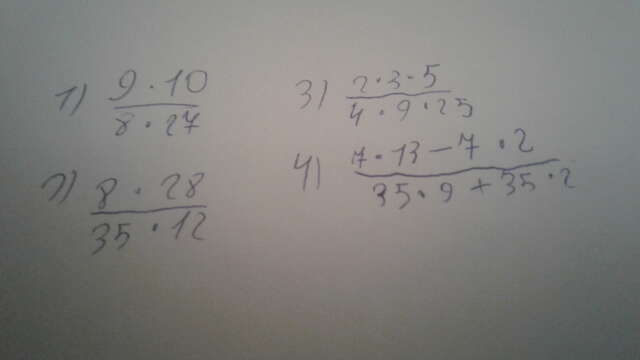 1) 9 · 10 / 8 · 27
2) 8 · 28 / 35 · 12
3) 2 · 3 · 5 / 4 · 9 · 25
4) 7 · 13 - 7 · 2 / 35 · 9 + 35 · 2